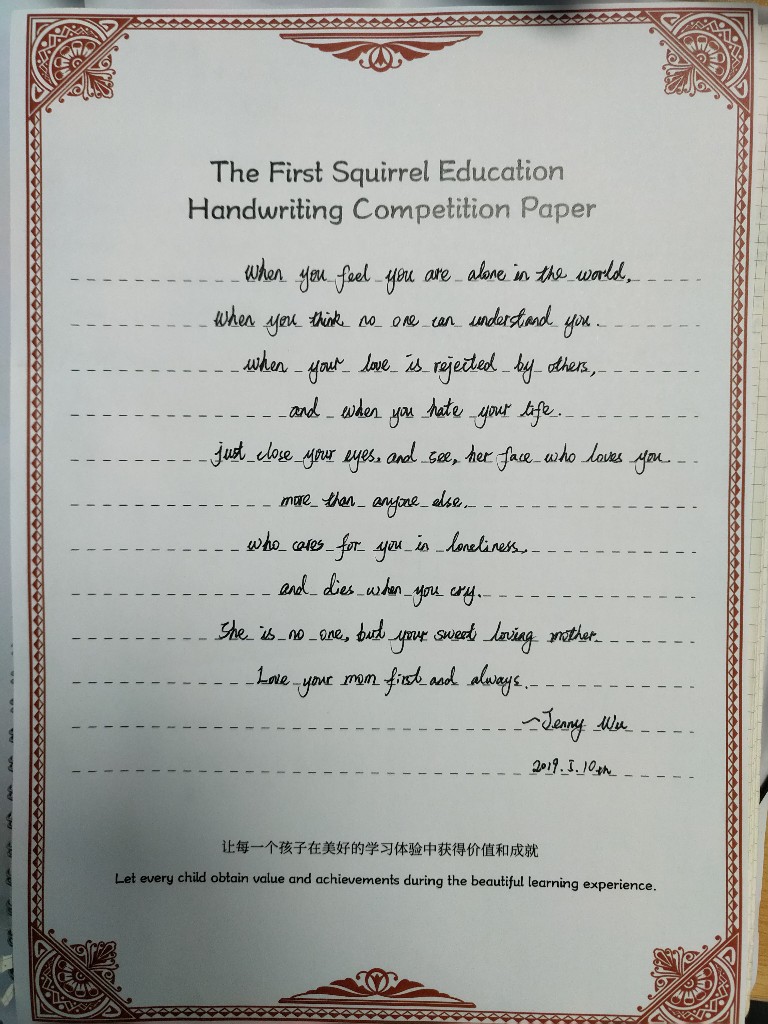 The First Squirrel Education
Handwriting Competition Paper
When you feel you are alone in the world,
When you think no one can understand you.
when your love is rejected by others,
and when you hate your life.
just close your eyes, and see, her face who loves you
more than anyone else.
who cares for you in loneliness.
and dies when you cry.
She is no one, but your sweet loving mother.
Love your mom first and always.
~Jenny Wu
2019.5.10th
让每一个孩子在美好的学习体验中获得价值和成就
Let every child obtain value and achievements during the beautiful learning experience.